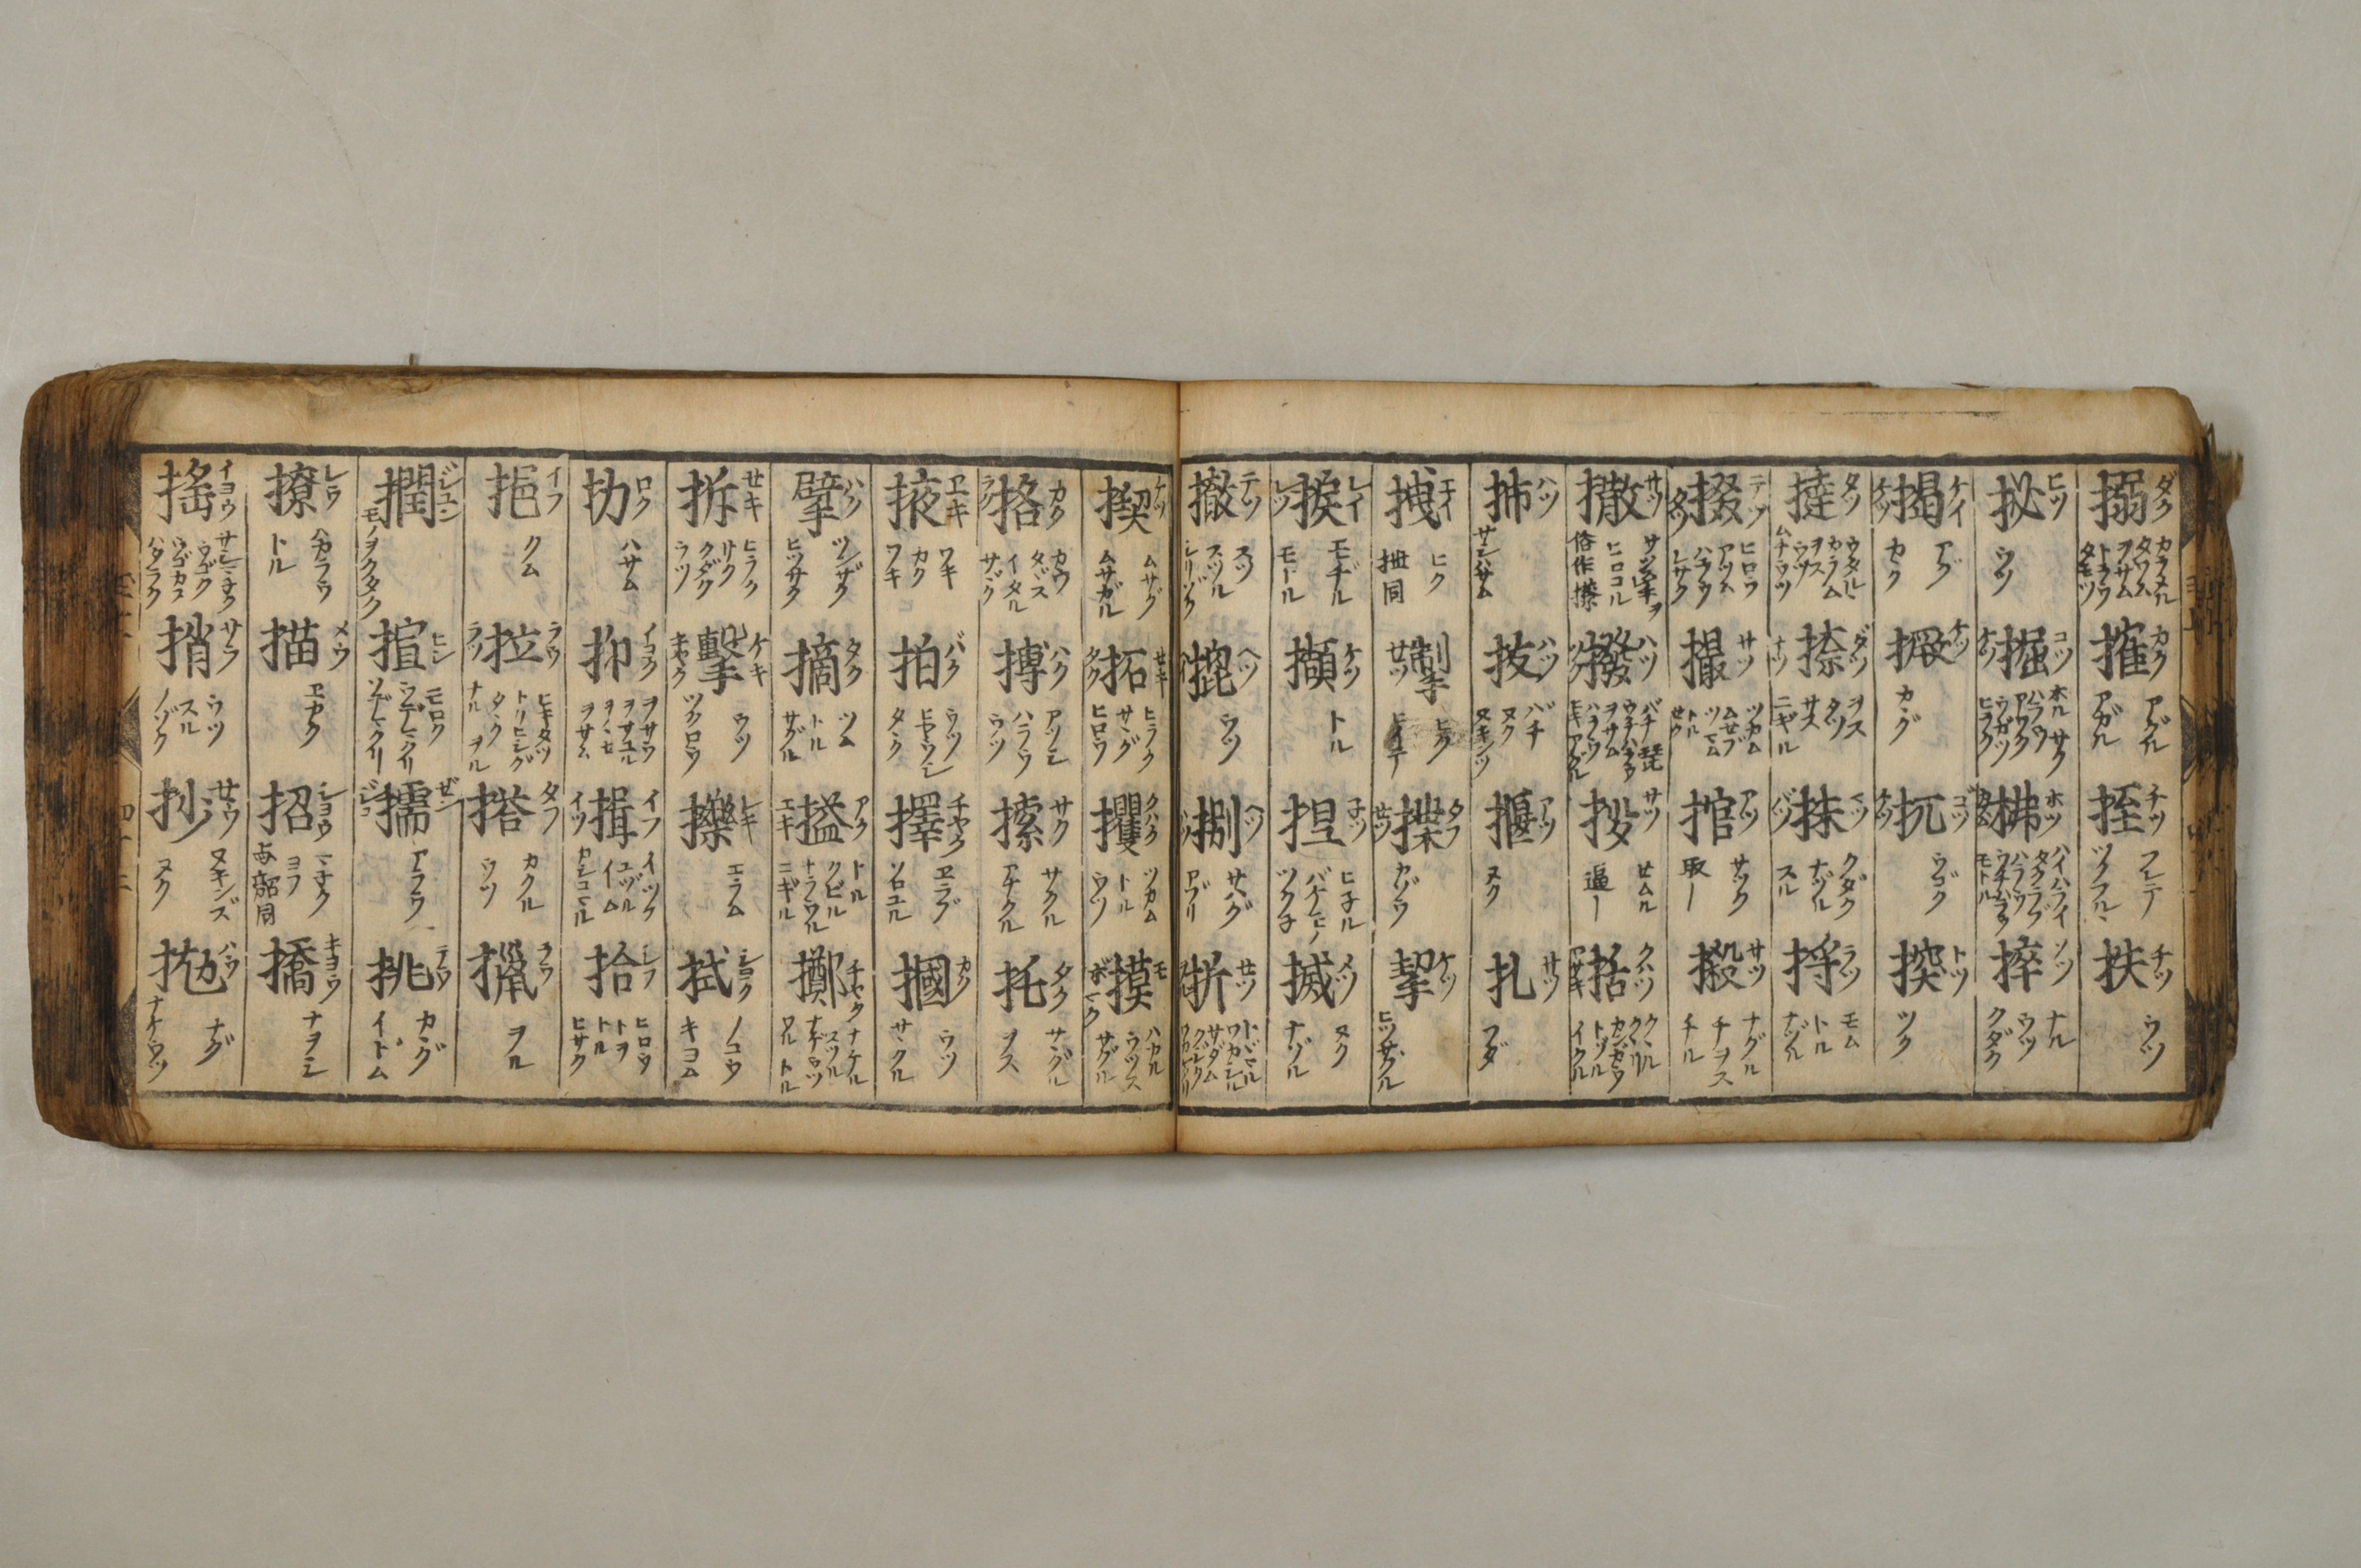 搦 ダク カラメル タワム ヲサム トラウ タモツ
搉 カク アグル アガル
挃 チツ フレテ ツクフル
抶 チツ ウツ
抋 ヒツ ウツ
掘 コツ ケツ ホル サク ハラウ アハク ウガツ ヒラク
拂 ホツ ハイハライ タクラブ ハラウ ウチハラウ モトル
捽 ソツ ナル ウツ クダク
揭 ケイ ケツ アグ カク
撅 ケツ カヽグ
扤 コツ ウゴク
揬 トツ ツク
撻 タツ ウタル カラム ヲス ウツ ムチウツ
捺 ダツ ナツ ヲス タツ サス ニギル
抹 バツ クダク ナヅル スル
捋 ラツ モム トル ナヅル
掇 テツ タツ ヒロフ アツム ハラウ レサク
撮 サツ ツカム ムサブ ツヽム トル
捾 アツ サク 取ー
摋 サツ ナグル チヲス チル
撒 サツ ヒロコル 俗作㩒
撥 ハツ バチ 琵 ウチハラウ ヲサム ハラウ
拶 サツ せムル 逼ー
括 クハツ クヽル クヽリ カンガウ トヅル イクル
抪 ハツ サシハサム
拔 ハツ バチ ヌク ヌキンツ
揠 アツ ヌク
扎 サツ フダ
拽 エイ ヒク 抴同
掣 せツ ヒク ヒイテ
揲 タフ せツ カゾウ
挈 ケツ ヒツサグル
捩 レイ レツ モヂル モトル
擷 ケツ トル
捏 子ツ ヒ子ル ツク子
搣 メツ ヌク ナヅル
撤 テツ スツ スツル シリゾク
㧙 ヘツ ウツ
捌 ヘツ サバグ アブリ
折 せツ トドル ワカシル サダム クダク
揳 ケツ ムサグ ムサガル
拓 せキ タク ヒラク サヽグ ヒロウ
攫 クハク ツカム トル ウツ
摸 モ ボヽク ハカル ウツス サグル
挌 カク ラク カウ タヾス イタル サヽグ
搏 ハク アツシ ハラウ ウツ
摍 サク サクル アナクル
托 タク サグル ヲス
掖 ヱキ ワキ カク ワキ
拍 バク ウツ ヒヤウシ タヽク
擇 チヤク ヱラブ ソロユル
摑 カク ウツ サヽクル
擘 ハク ツンザク ヒツサク
摘 タク ツム トル サグル
搤 アク エキ トル クビル トラウル ニギル
擲 チヤク ナケル スツル ナゲウツ トル
拆 せキ ヒラク サク クダク ウツ
擊 ケキ キヤク ウツ ツクロウ
擽 レキ エラム
拭 シヨク ノコウ キヨム
扐 ロク ハサム
抑 イヨク ヲサウ ヲサユル ヲサム
揖 イフ イツ イツク ユヅル イム
拾 シフ ヒロウ トヲ トル ヒサク
挹 イフ クム
拉 ラウ ラツ ヒキタツ トリヒシグ タヽク ナル ヲル
搭 タフ カクル ウツ
擸 ラウ ヲル
撋 ジユン モノヲクタク
揎 ヒン モロク ウデマクリ ソデマクリ
擩 ゼン ジユ アラウ
挑 テウ カヽグ イトム
撩 レウ ハカラウ トル
描 メウ ヱカク
招 シヨウ マ子ク ヨフ 与㲈同
撟 キヨウ ナヲシ
搖 イヨウ サシマ子ク ウゴク ウゴカス ハタラク
捎 サウ ウツ スル ノゾク
抄 せウ ヌキンズ ヌク
抛 ハウ ナグ ナゲウツ